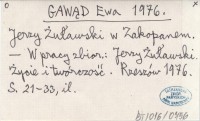 GAWĄD Ewa 1976.
Jerzy Żuławski w Zakopanem.
– W pracy zbior.: Jerzy Żuławski.
Życie i twórczość. Rzeszów 1976.
S. 21–33, il.